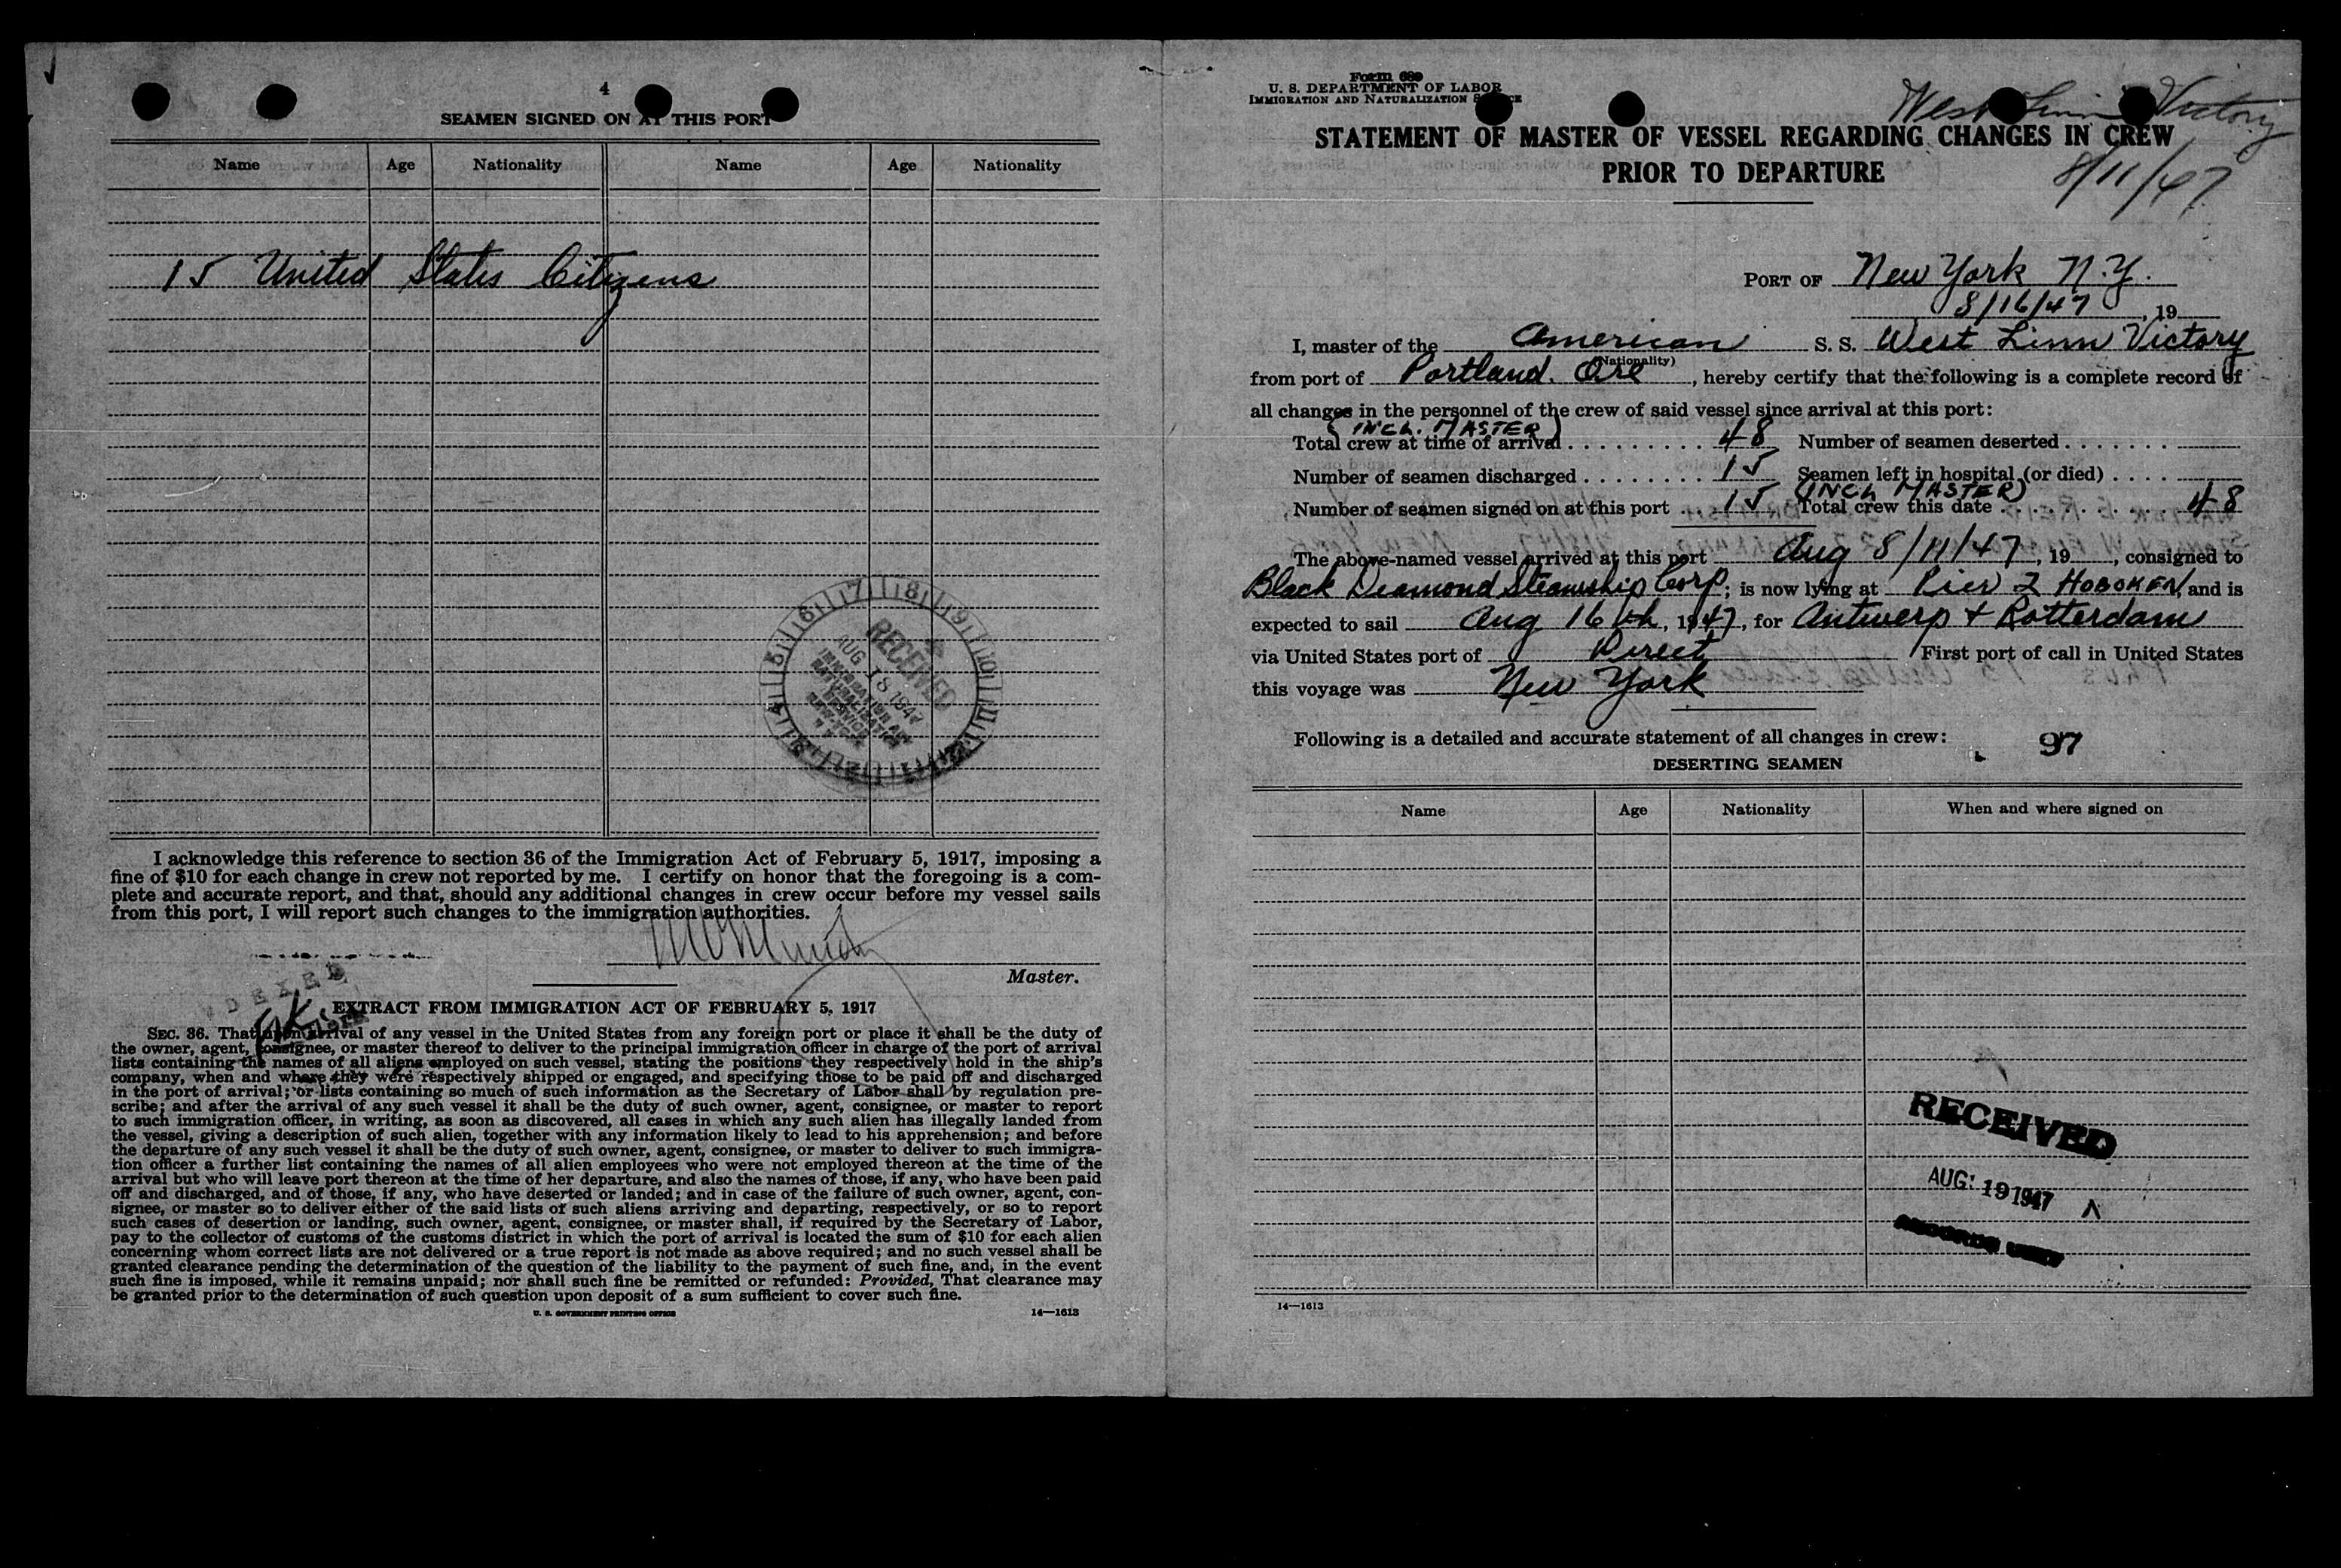 4
SEAMEN SIGNED ON AT THIS PORT
Name Age Nationality Name Age Nationality
15 United States Citizens
RECEIVED
AUG 18 1947
I acknowledge this reference to section 36 of the Immigration Act of February 5, 1917, imposing a
fine of $10 for each change in crew not reported by me. I certify on honor that the foregoing is a com-
plete and accurate report, and that, should any additional changes in crew occur before my vessel sails
from this port, I will report such changes to the immigration authorities.
Master.
EXTRACT FROM IMMIGRATION ACT OF FEBRUARY 5, 1917
SEC. 36. That upon arrival of any vessel in the United States from any foreign port or place it shall be the duty of
the owner, agent, consignee, or master thereof to deliver to the principal immigration officer in charge of the port of arrival
lists containing the names of all aliens employed on such vessel, stating the positions they respectively hold in the ship's
company, when and where they were respectively shipped or engaged, and specifying those to be paid off and discharged
in the port of arrival; or lists containing so much of such information as the Secretary of Labor shall by regulation pre-
scribe; and after the arrival of any such vessel it shall be the duty of such owner, agent, consignee, or master to report
to such immigration officer, in writing, as soon as discovered, all cases in which any such alien has illegally landed from
the vessel, giving a description of such alien, together with any information likely to lead to his apprehension; and before
the departure of any such vessel it shall be the duty of such owner, agent, consignee, or master to deliver to such immigra-
tion officer a further list containing the names of all alien employees who were not employed thereon at the time of the
arrival but who will leave port thereon at the time of her departure, and also the names of those, if any, who have been paid
off and discharged, and of those, if any, who have deserted or landed; and in case of the failure of such owner, agent, con-
signee, or master so to deliver either of the said lists of such aliens arriving and departing, respectively, or so to report
such cases of desertion or landing, such owner, agent, consignee, or master shall, if required by the Secretary of Labor,
pay to the collector of customs of the customs district in which the port of arrival is located the sum of $10 for each alien
concerning whom correct lists are not delivered or a true report is not made as above required; and no such vessel shall be
granted clearance pending the determination of the question of the liability to the payment of such fine, and, in the event
such fine is imposed, while it remains unpaid; nor shall such fine be remitted or refunded: Provided, That clearance may
be granted prior to the determination of such question upon deposit of a sum sufficient to cover such fine.
U. S. GOVERNMENT PRINTING OFFICE 14—1613
Form 689
U. S. DEPARTMENT OF LABOR
IMMIGRATION AND NATURALIZATION SERVICE
West Linn Victory
STATEMENT OF MASTER OF VESSEL REGARDING CHANGES IN CREW
PRIOR TO DEPARTURE
8/11/47
PORT OF New York N.Y.
8/16/47, 19
I, master of the American S. S. West Linn Victory
(Nationality)
from port of Portland. Ore, hereby certify that the following is a complete record of
all changes in the personnel of the crew of said vessel since arrival at this port:
(INCL. MASTER)
Total crew at time of arrival 48 Number of seamen deserted
Number of seamen discharged 15 Seamen left in hospital (or died)
(INCL MASTER)
Number of seamen signed on at this port 15 Total crew this date 48
The above-named vessel arrived at this port Aug 8/11/47, 19, consigned to
Black Diamond Steamship Corp; is now lying at Pier 2 HOBOKEN, and is
expected to sail Aug 16th, 1947, for Antwerp + Rotterdam
via United States port of Direct First port of call in United States
this voyage was New York
Following is a detailed and accurate statement of all changes in crew: 97
DESERTING SEAMEN
Name Age Nationality When and where signed on
RECEIVED
AUG 19 1947
RECORDS UNIT
14—1613